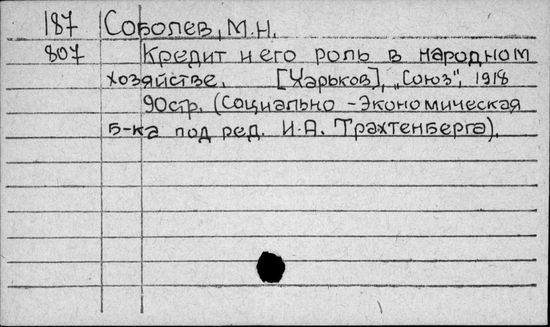 187 Соболев, М.Н.
807 Кредит и его роль в народном
хозяйстве. [Харьков], „Союз", 1918
90стр. (Социально-Экономическая
Б-ка под ред. И.А. Трахтенберга).